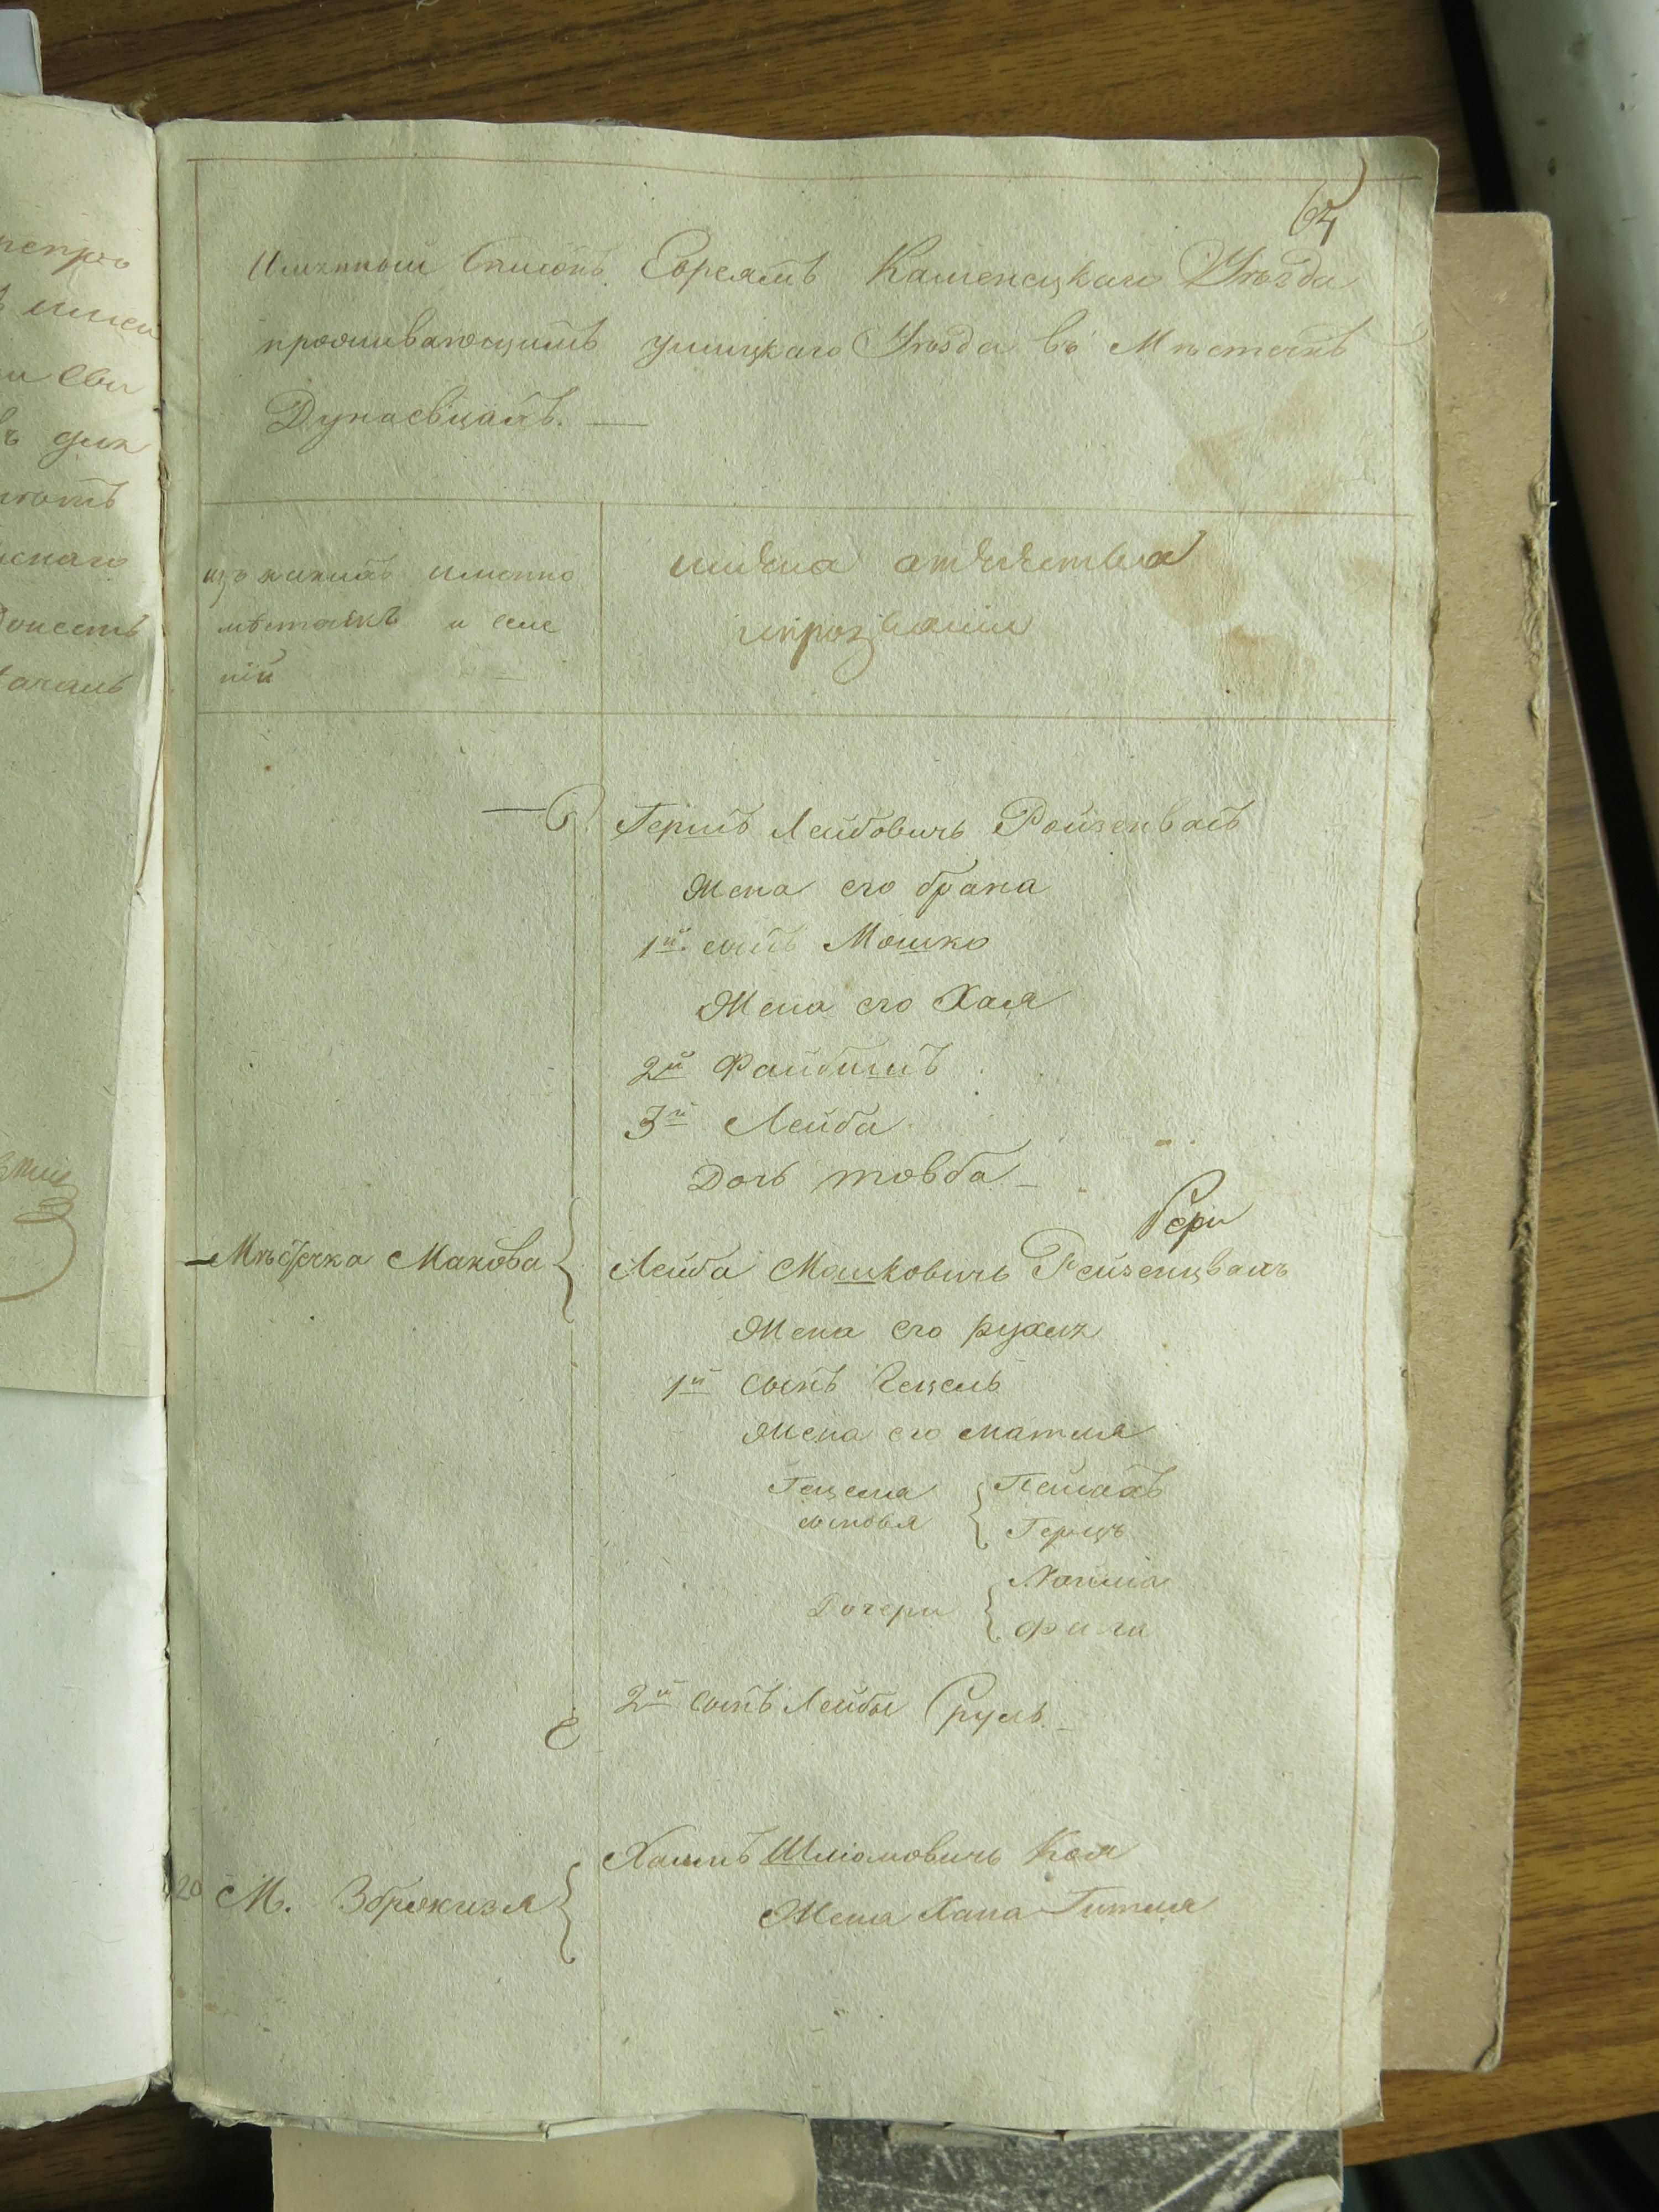 64
Имянный Списокъ Евреямъ Каменецкаго Уѣзда
проживающимъ ушицкаго Уѣзда въ Мѣстечкѣ
Дунаевцахъ. —
изъ какихъ именно
мѣстечкъ и селе
ній
имена отечества
и прозвании
Гершъ Лейбовичь Ройзенвасъ
Жена его брана
1й. сынъ Мошко
Жена его Хая
2й Файбишъ
3й Лейба
Дочь товба —
Гери
Мѣстечка Макова { Лейба Мошковичь Рейзенцвахъ
Жена его рухля
1й сынъ Гецель
Жена его матля
Гецеля { Пейсахъ
сыновя Герцъ
Дочери {
Фига
2й сынъ Лейбы Сруль. —
Хаимъ Шліомовичь Коя
20 М. Збрижизя {
Жена Хана Гитля